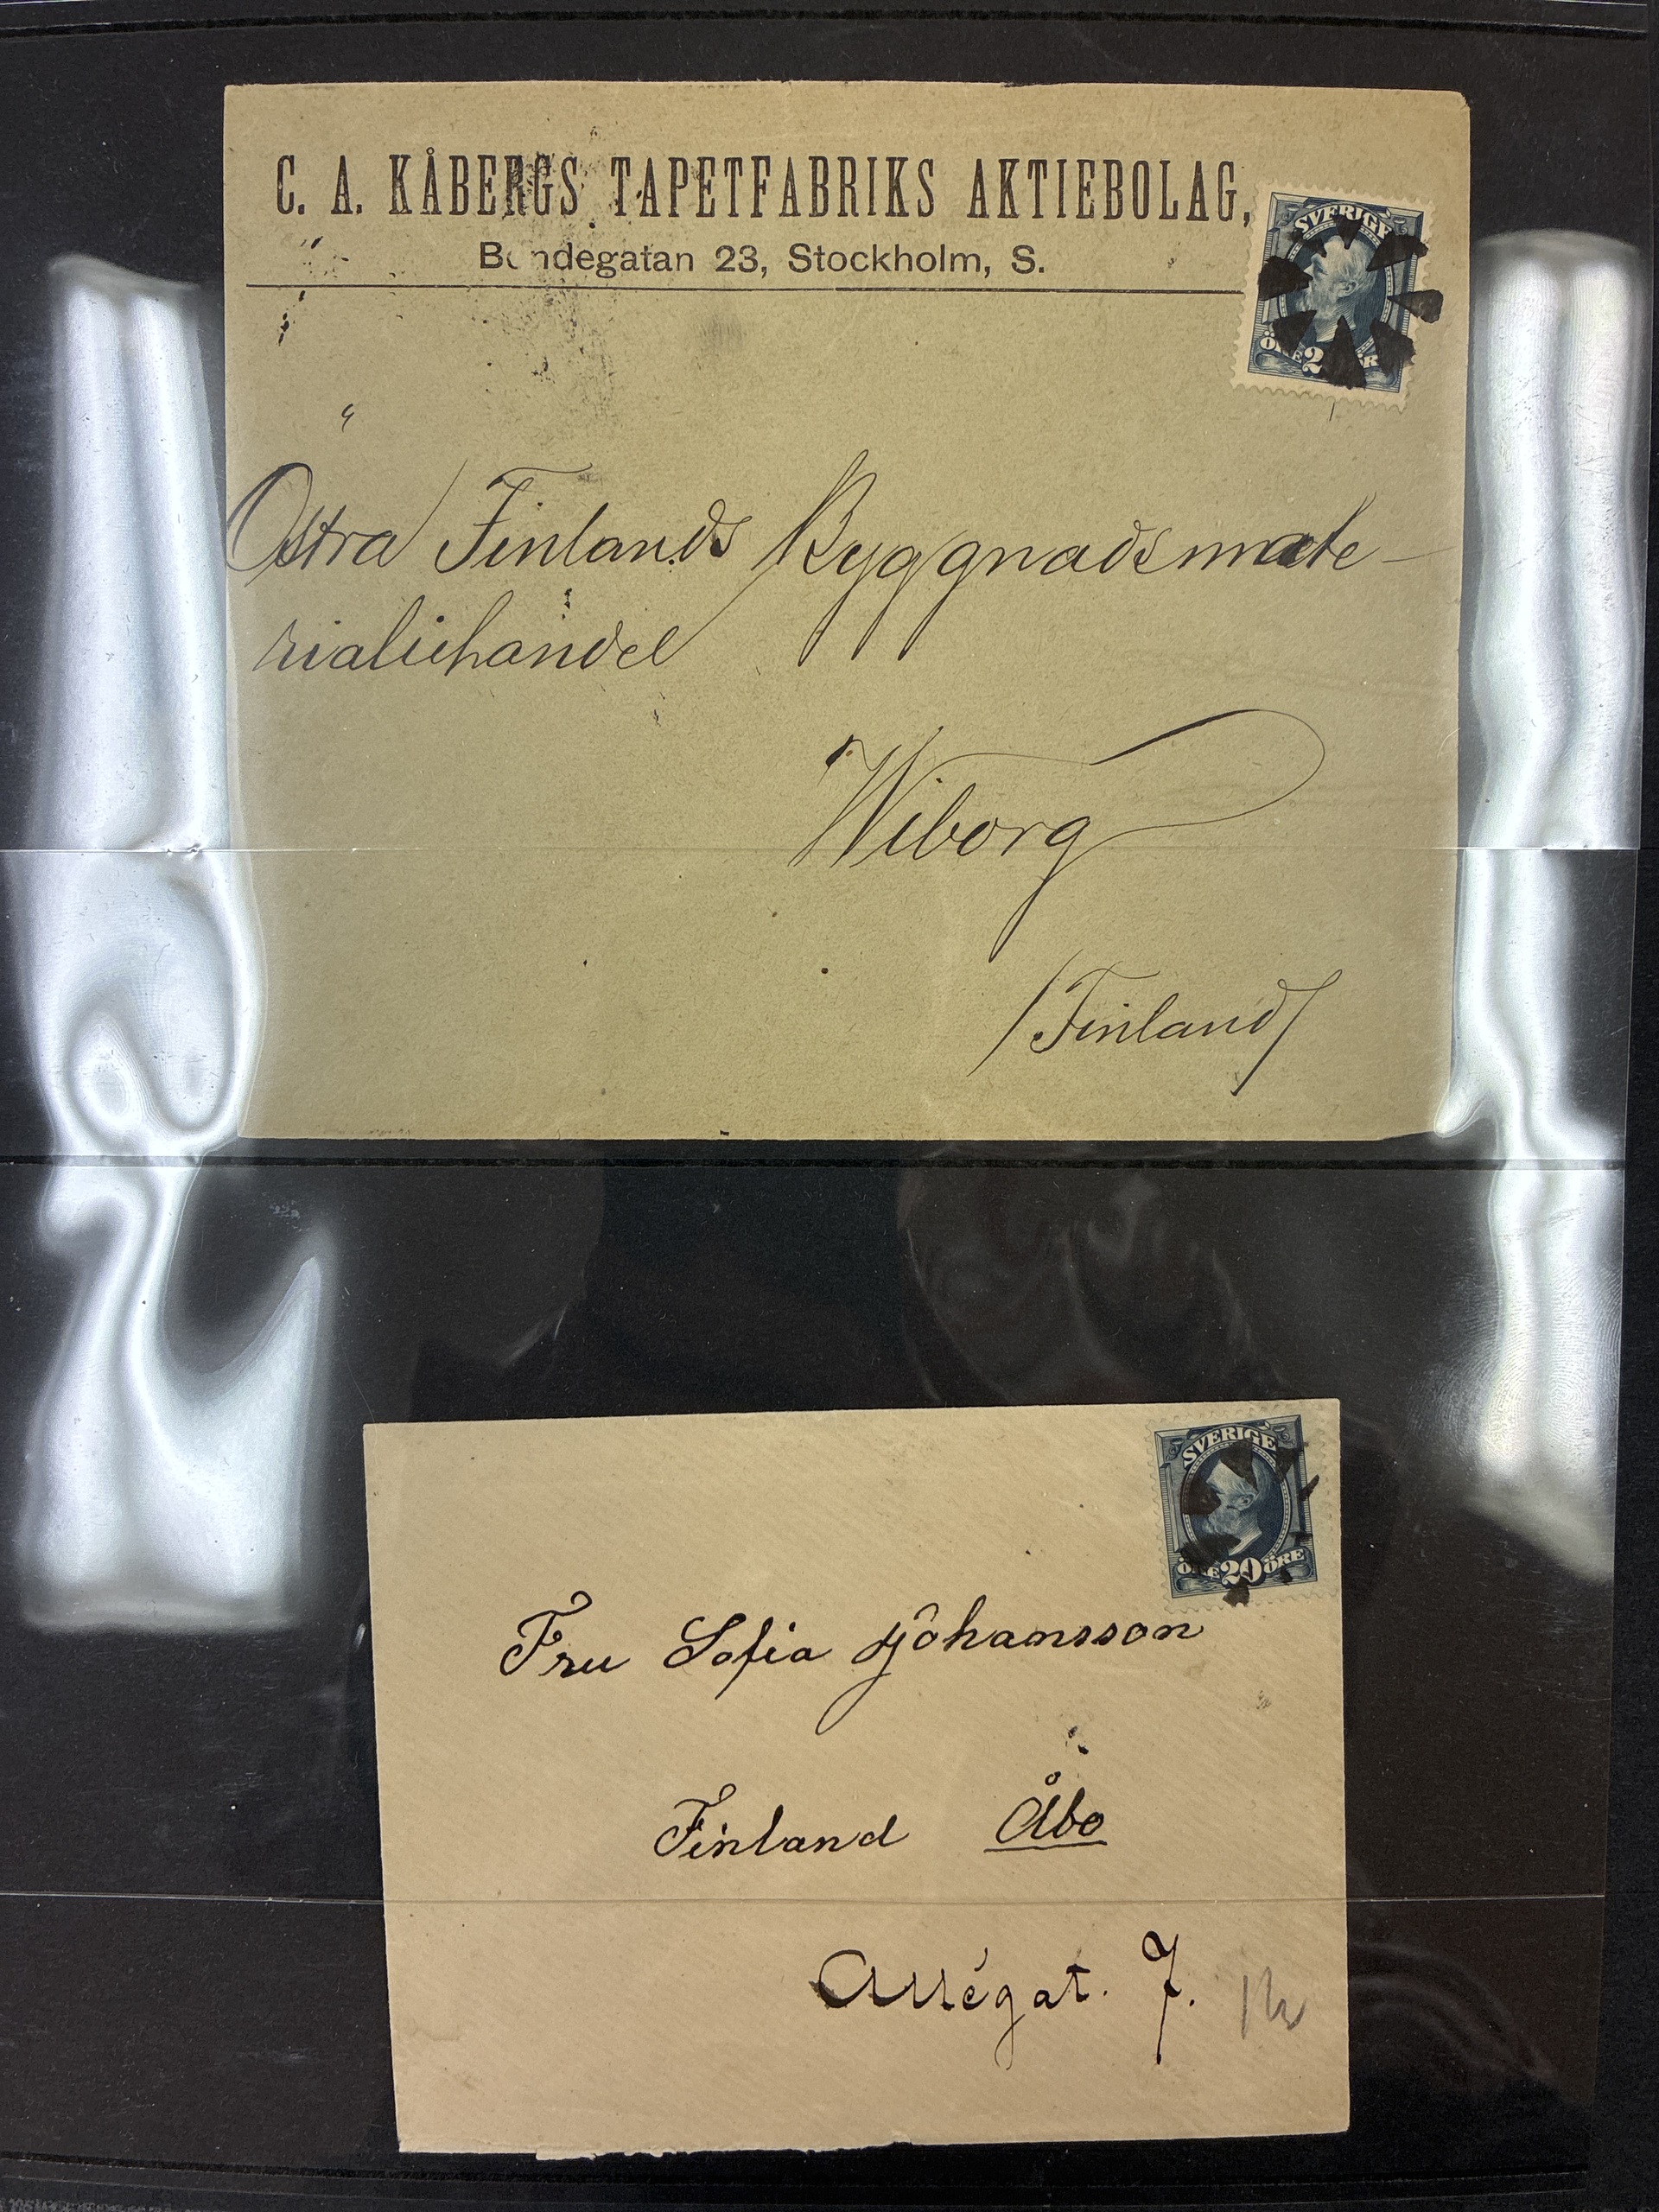 C. A. KÅBERGS TAPETFABRIKS AKTIEBOLAG,
Bondegatan 23, Stockholm, S.
SVERIGE
ÖRE 20 ÖRE
Östra Finlands Byggnadsmate-
rialiehandel
Wiborg
/Finland/
SVERIGE
ÖRE 20 ÖRE
Fru Sofia Johansson
Finland Åbo
Allégat. 7.